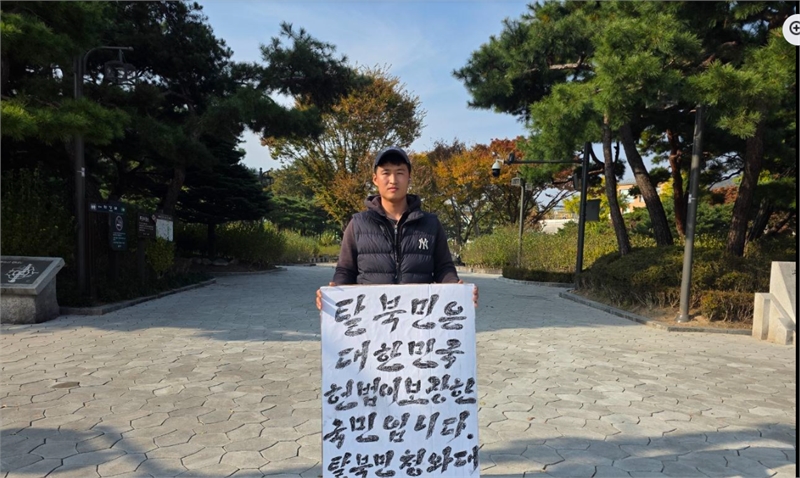 탈북민은
대한민국
헌법이 보장한
국민입니다.
탈북민 청와대
NY